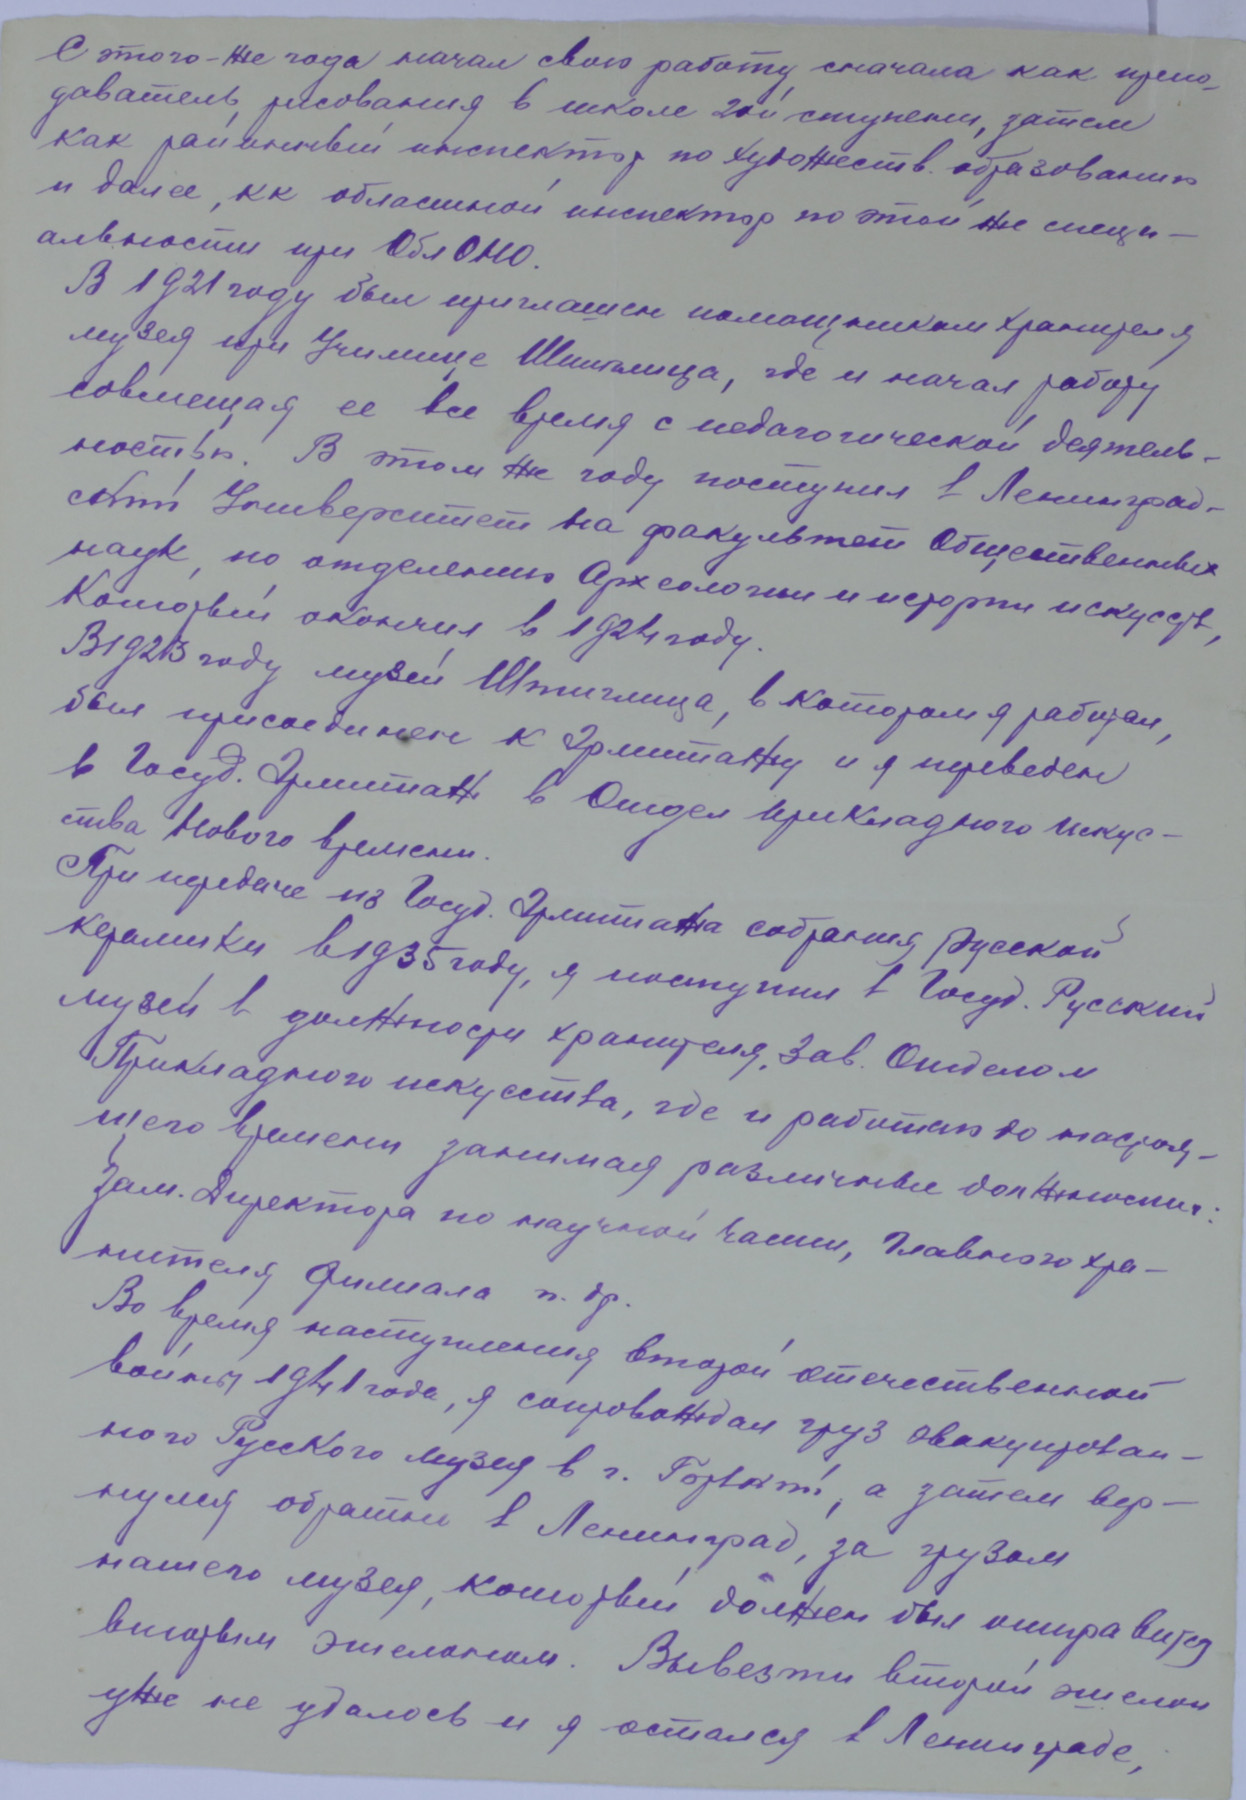 С этого-же года начал свою работу сначала как препо-
даватель рисования в школе 2ой ступени, затем
как районный инспектор по художеств. образованию
и далее, кк областной инспектор по этой же специ-
альности при ОблОНО.
В 1921 году был приглашен помощником хранителя
музея при Училище Штиглица, где и начал работу
совмещая ее все время с педагогической деятель-
ностью. В этом же году поступил в Ленинград-
ский Университет на факультет Общественных
наук, по отделению Археологии и истории искусств,
который окончил в 1924 году.
В 1923 году музей Штиглица, в котором я работал,
был присоединен к Эрмитажу и я переведен
в Госуд. Эрмитаж в Отдел прикладного искус-
ства Нового времени.
При передаче из Госуд. Эрмитажа собрания Русской
керамики в 1935 году, я поступил в Госуд. Русский
музей в должности хранителя, Зав. Отделом
Прикладного искусства, где и работаю до настоя-
щего времени занимая различные должности:
Зам. Директора по научной части, Главного хра-
нителя филиала и др.
Во время наступления второй отечественной
войны 1941 года, я сопровождал груз эвакуирован-
ного Русского музея в г. Горький, а затем вер-
нулся обратно в Ленинград, за грузом
нашего музея, который должен был отправится
вторым эшелоном. Вывезти второй эшелон
уже не удалось и я остался в Ленинграде,